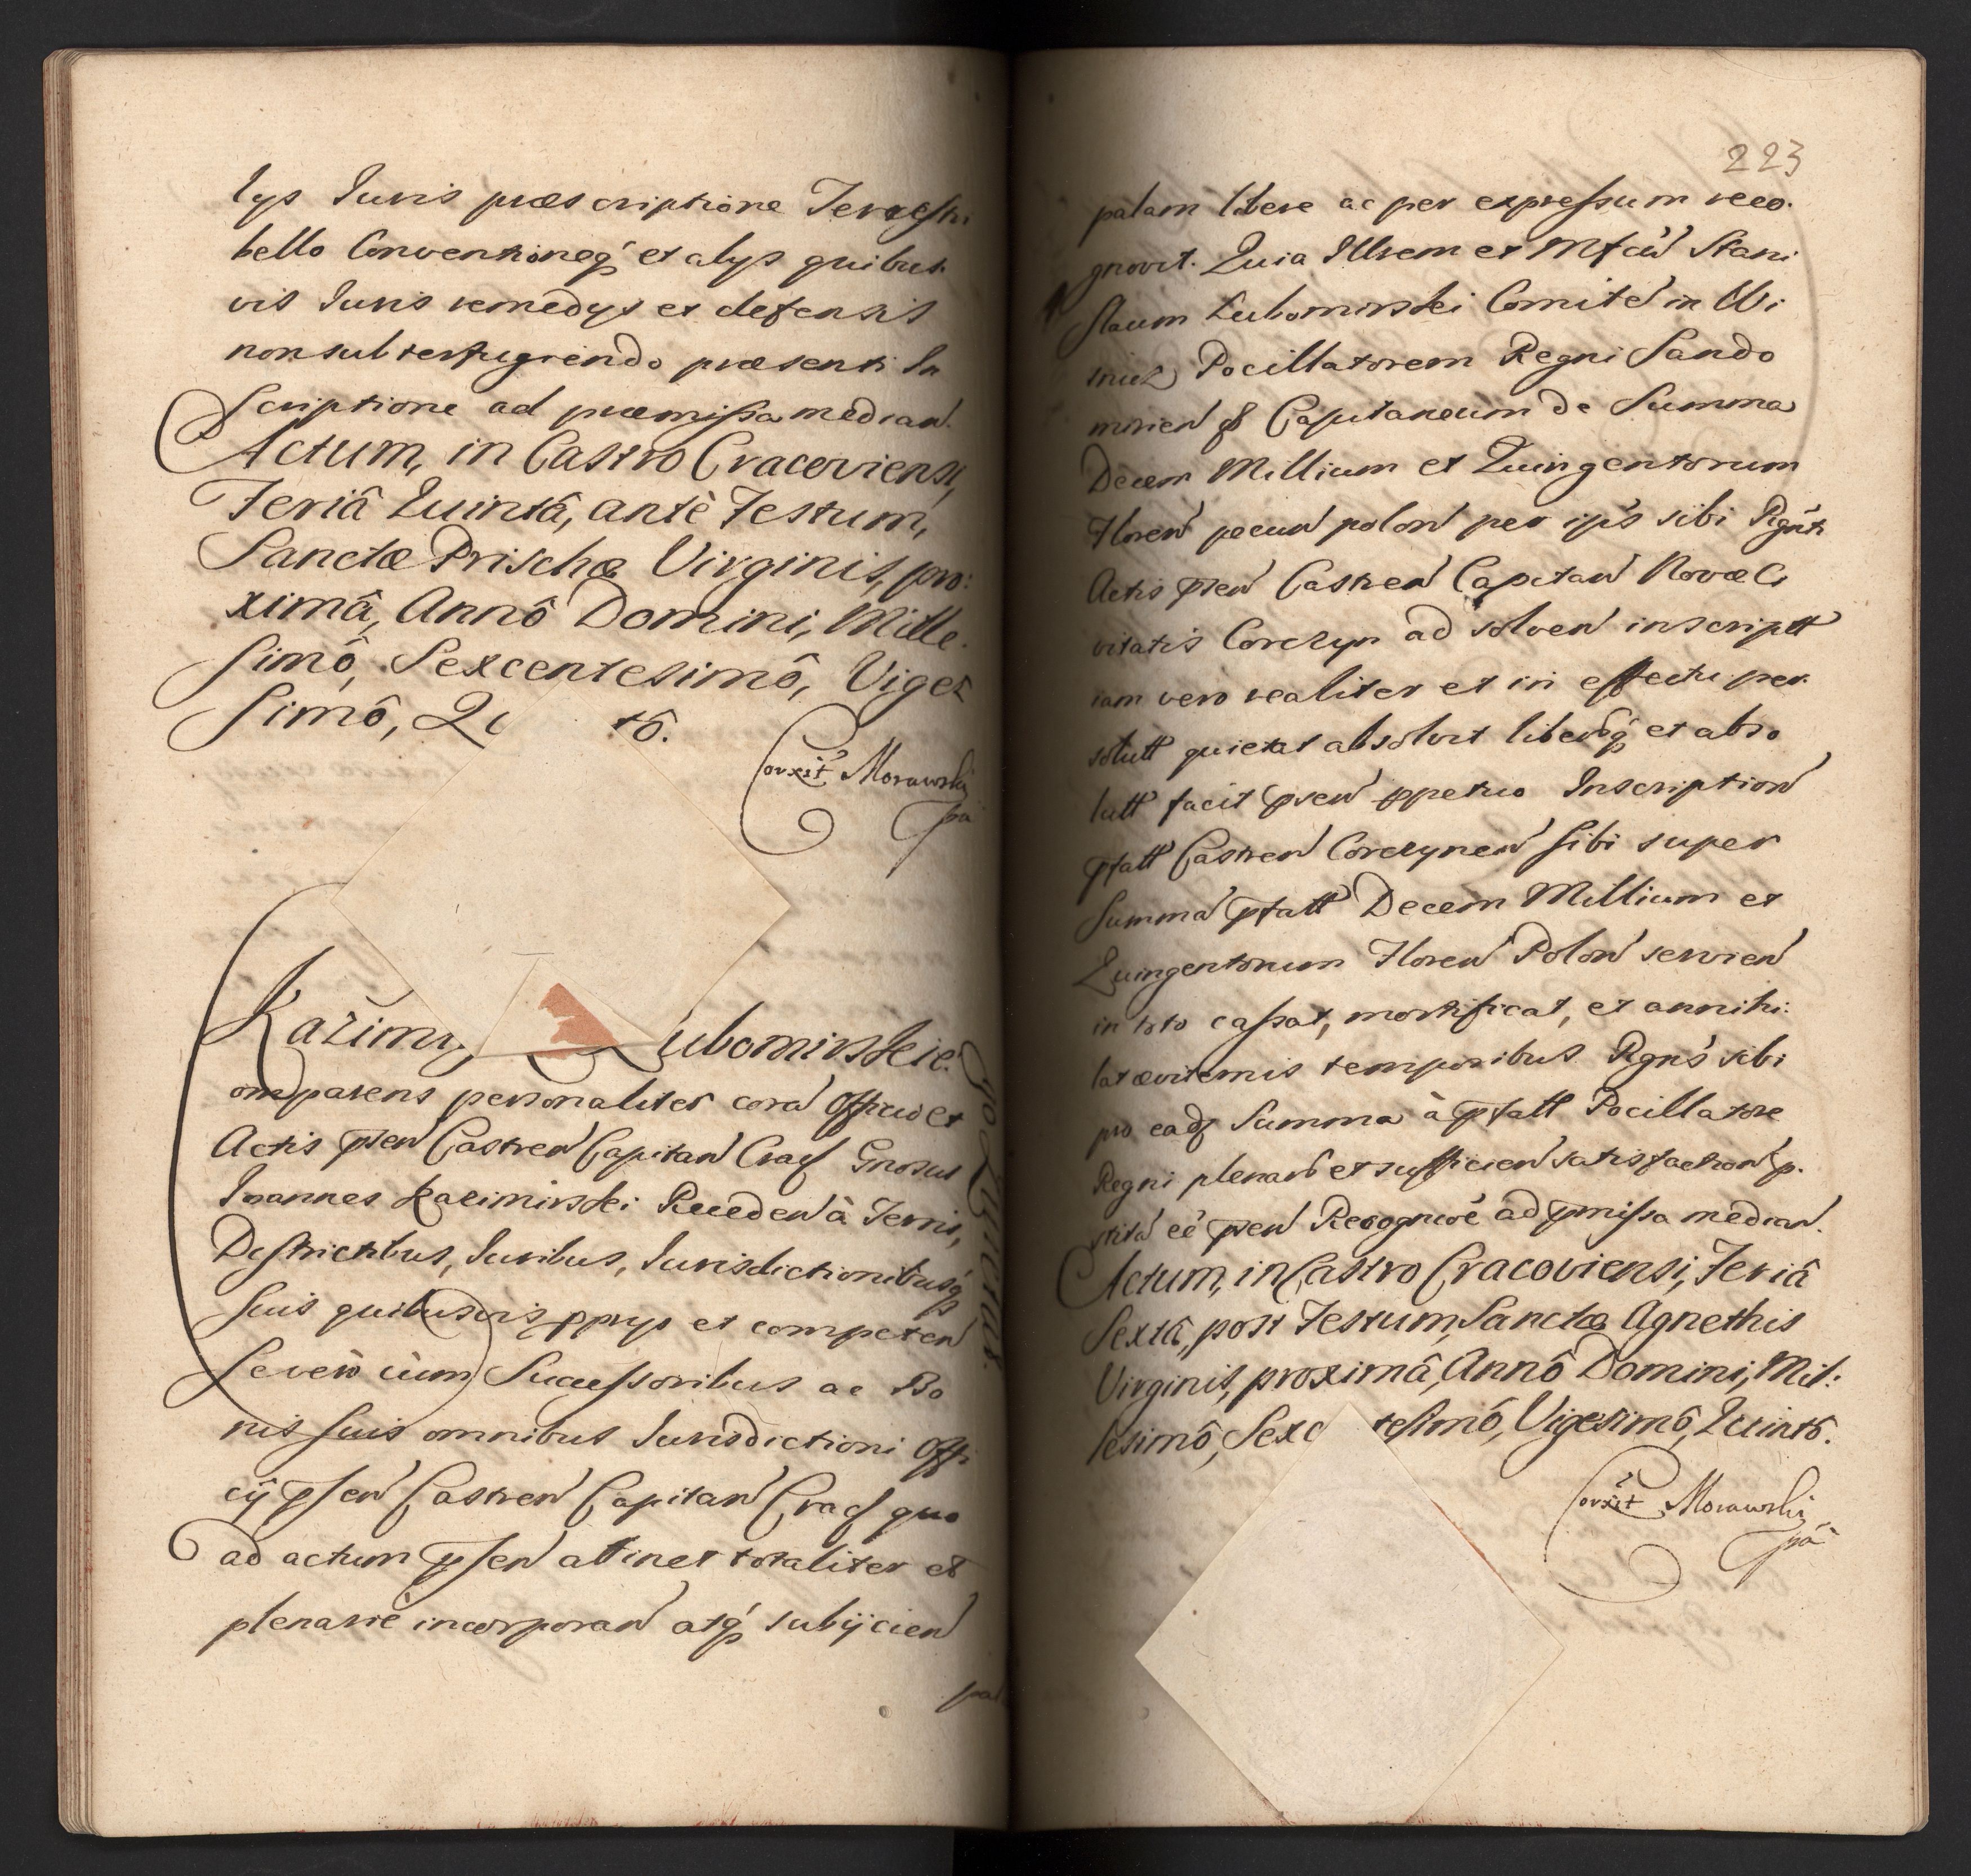 lys Juris præscriptione Terrestri
bello Conventioneq́ et alys quibus
vis Juris remedys et defensis
non subterfugiendo præsenti In
scriptione ad præmissa median
Actum, in Castro Cracoviensi,
Feriâ Quintâ, antè Festum,
Sanctæ Prischæ Virginis, pro:
ximâ, Annô Domini, Mille
simô, Sexcentesimô, Viges
simô, Qu tô.
Corxit Morawski
pa
Kazimi Lubomirskie
go Quietat.
omparens personaliter corā Officio et
Actis pñen Castren Capitan Crac Gnosus
Joannes Kazimirski Receden à Terris,
Districtibus, Juribus, Jurisdictionibusq́
suis quibusvis pprys et competen
se verò cùm Successoribus ac Bo
nis suis omnibus Jurisdictioni Offi
cÿ pñsen Castren Capitan Crac quo
ad actum pñsen atinet totaliter et
plenariè incorporan atq́ subÿcien
pal
223
palam libere ac per expressum reco.
gnovit. Quia Illrem et Mfcū Stani
slaum Lubomirski Comitē in Wi
śnicz Pocillatorem Regni Sando
mirien Capitaneum de Summa
Decem Millium et Quingentorum
Floren pecun polon per ips sibi Rgnti
Actis pñen Castren Capitan Novæ Ci
vitatis Corczyn ad solven inscriptt
iam vero realiter et in effectu per
solutt quietat absolvit liberūq́ et abso
lutt facit pñen ppetuo Inscription
pfatt Castren Corczynen sibi super
Summā pfatt Decem Millium et
Quingentorum Floren Polon servien
in toto cassat, mortificat, et annihi:
lat æviternis temporibus Rgns sibi
pro eadq́ Summa à pfatt Pocillatore
Regni plenar et sufficien satisfaction p.
stitā eē pñen Recognicōe ad pmissa median.
Actum, in Castro Cracoviensi, Feriâ
Sextâ, post Festum, Sanctæ Agnethis
Virginis, proximâ, Annô Domini, Mil:
lesimô, Sexc tesimô, Vigesimô, Quintô.
Corxit Morawski
pa